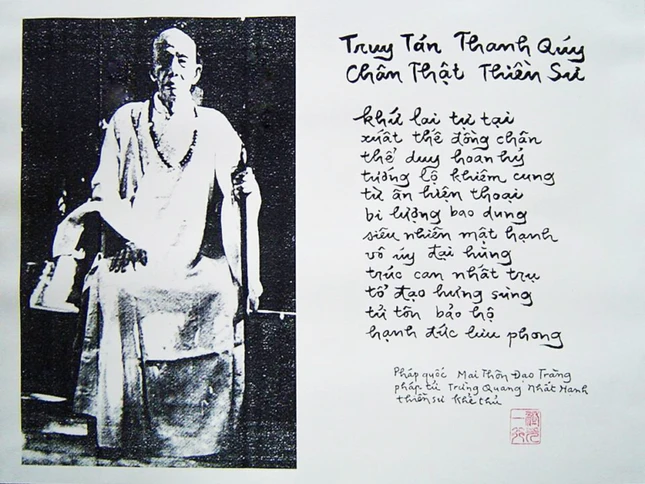 Truy Tán Thanh Quý
Chân Thật Thiền Sư
khứ lai tự tại
xuất thế đồng chân
thể duy hoan hỷ
tướng lộ khiêm cung
từ ân hiện thoại
bi lượng bao dung
siêu nhiên mật hạnh
vô úy đại hùng
trúc can nhất trụ
tổ đạo hưng sùng
tử tôn bảo hộ
hạnh đức lưu phong
Pháp quốc Mai Thôn Đạo Tràng
pháp tử Trừng Quang Nhất Hạnh
thiền sư khể thủ